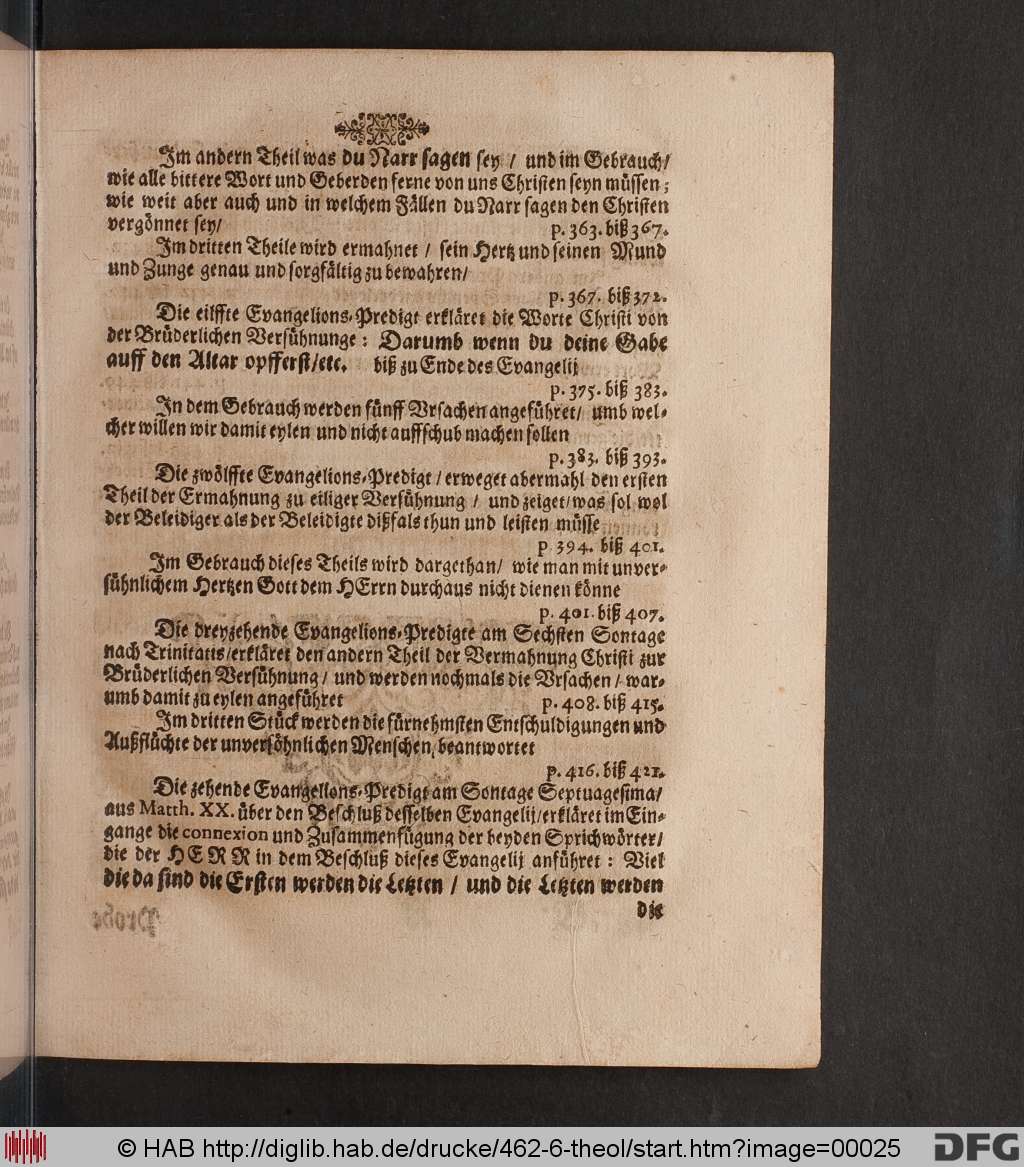 Im andern Theil was du Narr sagen sey / und im Gebrauch/
wie alle bittere Wort und Geberden ferne von uns Christen seyn müssen;
wie weit aber auch und in welchem Fällen du Narr sagen den Christen
vergönnet sey/ p. 363. biß 367.
Im dritten Theile wird ermahnet / sein Hertz und seinen Mund
und Zunge genau und sorgfältig zu bewahren/
p. 367. biß 372.
Die eilffte Evangelions-Predigt erkläret die Worte Christi von
der Brüderlichen Versühnunge: Darumb wenn du deine Gabe
auff den Altar opfferst/etc. biß zu Ende des Evangelij
p. 375. biß 383.
In dem Gebrauch werden fünff Vrsachen angeführet/ umb wel-
cher willen wir damit eylen und nicht auffschub machen sollen
p. 383. biß 393.
Die zwölffte Evangelions-Predigt / erweget abermahl den ersten
Theil der Ermahnung zu eiliger Versühnung / und zeiget/was sol wol
der Beleidiger als der Beleidigte dißfals thun und leisten müsse
p 394. biß 401.
Im Gebrauch dieses Theils wird dargethan/ wie man mit unver-
sühnlichem Hertzen Gott dem HErrn durchaus nicht dienen könne
p. 401. biß 407.
Die dreyzehende Evangelions-Predigte am Sechsten Sontage
nach Trinitatis/erkläret den andern Theil der Vermahnung Christi zur
Brüderlichen Versühnung / und werden nochmals die Vrsachen / war-
umb damit zu eylen angeführet p. 408. biß 415.
Im dritten Stück werden die fürnehmsten Entschuldigungen und
Außflüchte der unversöhnlichen Menschen/ beantwortet
p. 416. biß 421.
Die zehende Evangelions-Predigt am Sontage Septuagesima/
aus Matth. XX. über den Beschluß desselben Evangelij/erkläret im Ein-
gange die connexion und Zusammenfügung der beyden Sprichwörter/
die der HERR in dem Beschluß dieses Evangelij anführet: Viel
die da sind die Ersten werden die Letzten / und die Letzten werden
die
© HAB http://diglib.hab.de/drucke/462-6-theol/start.htm?image=00025
DFG